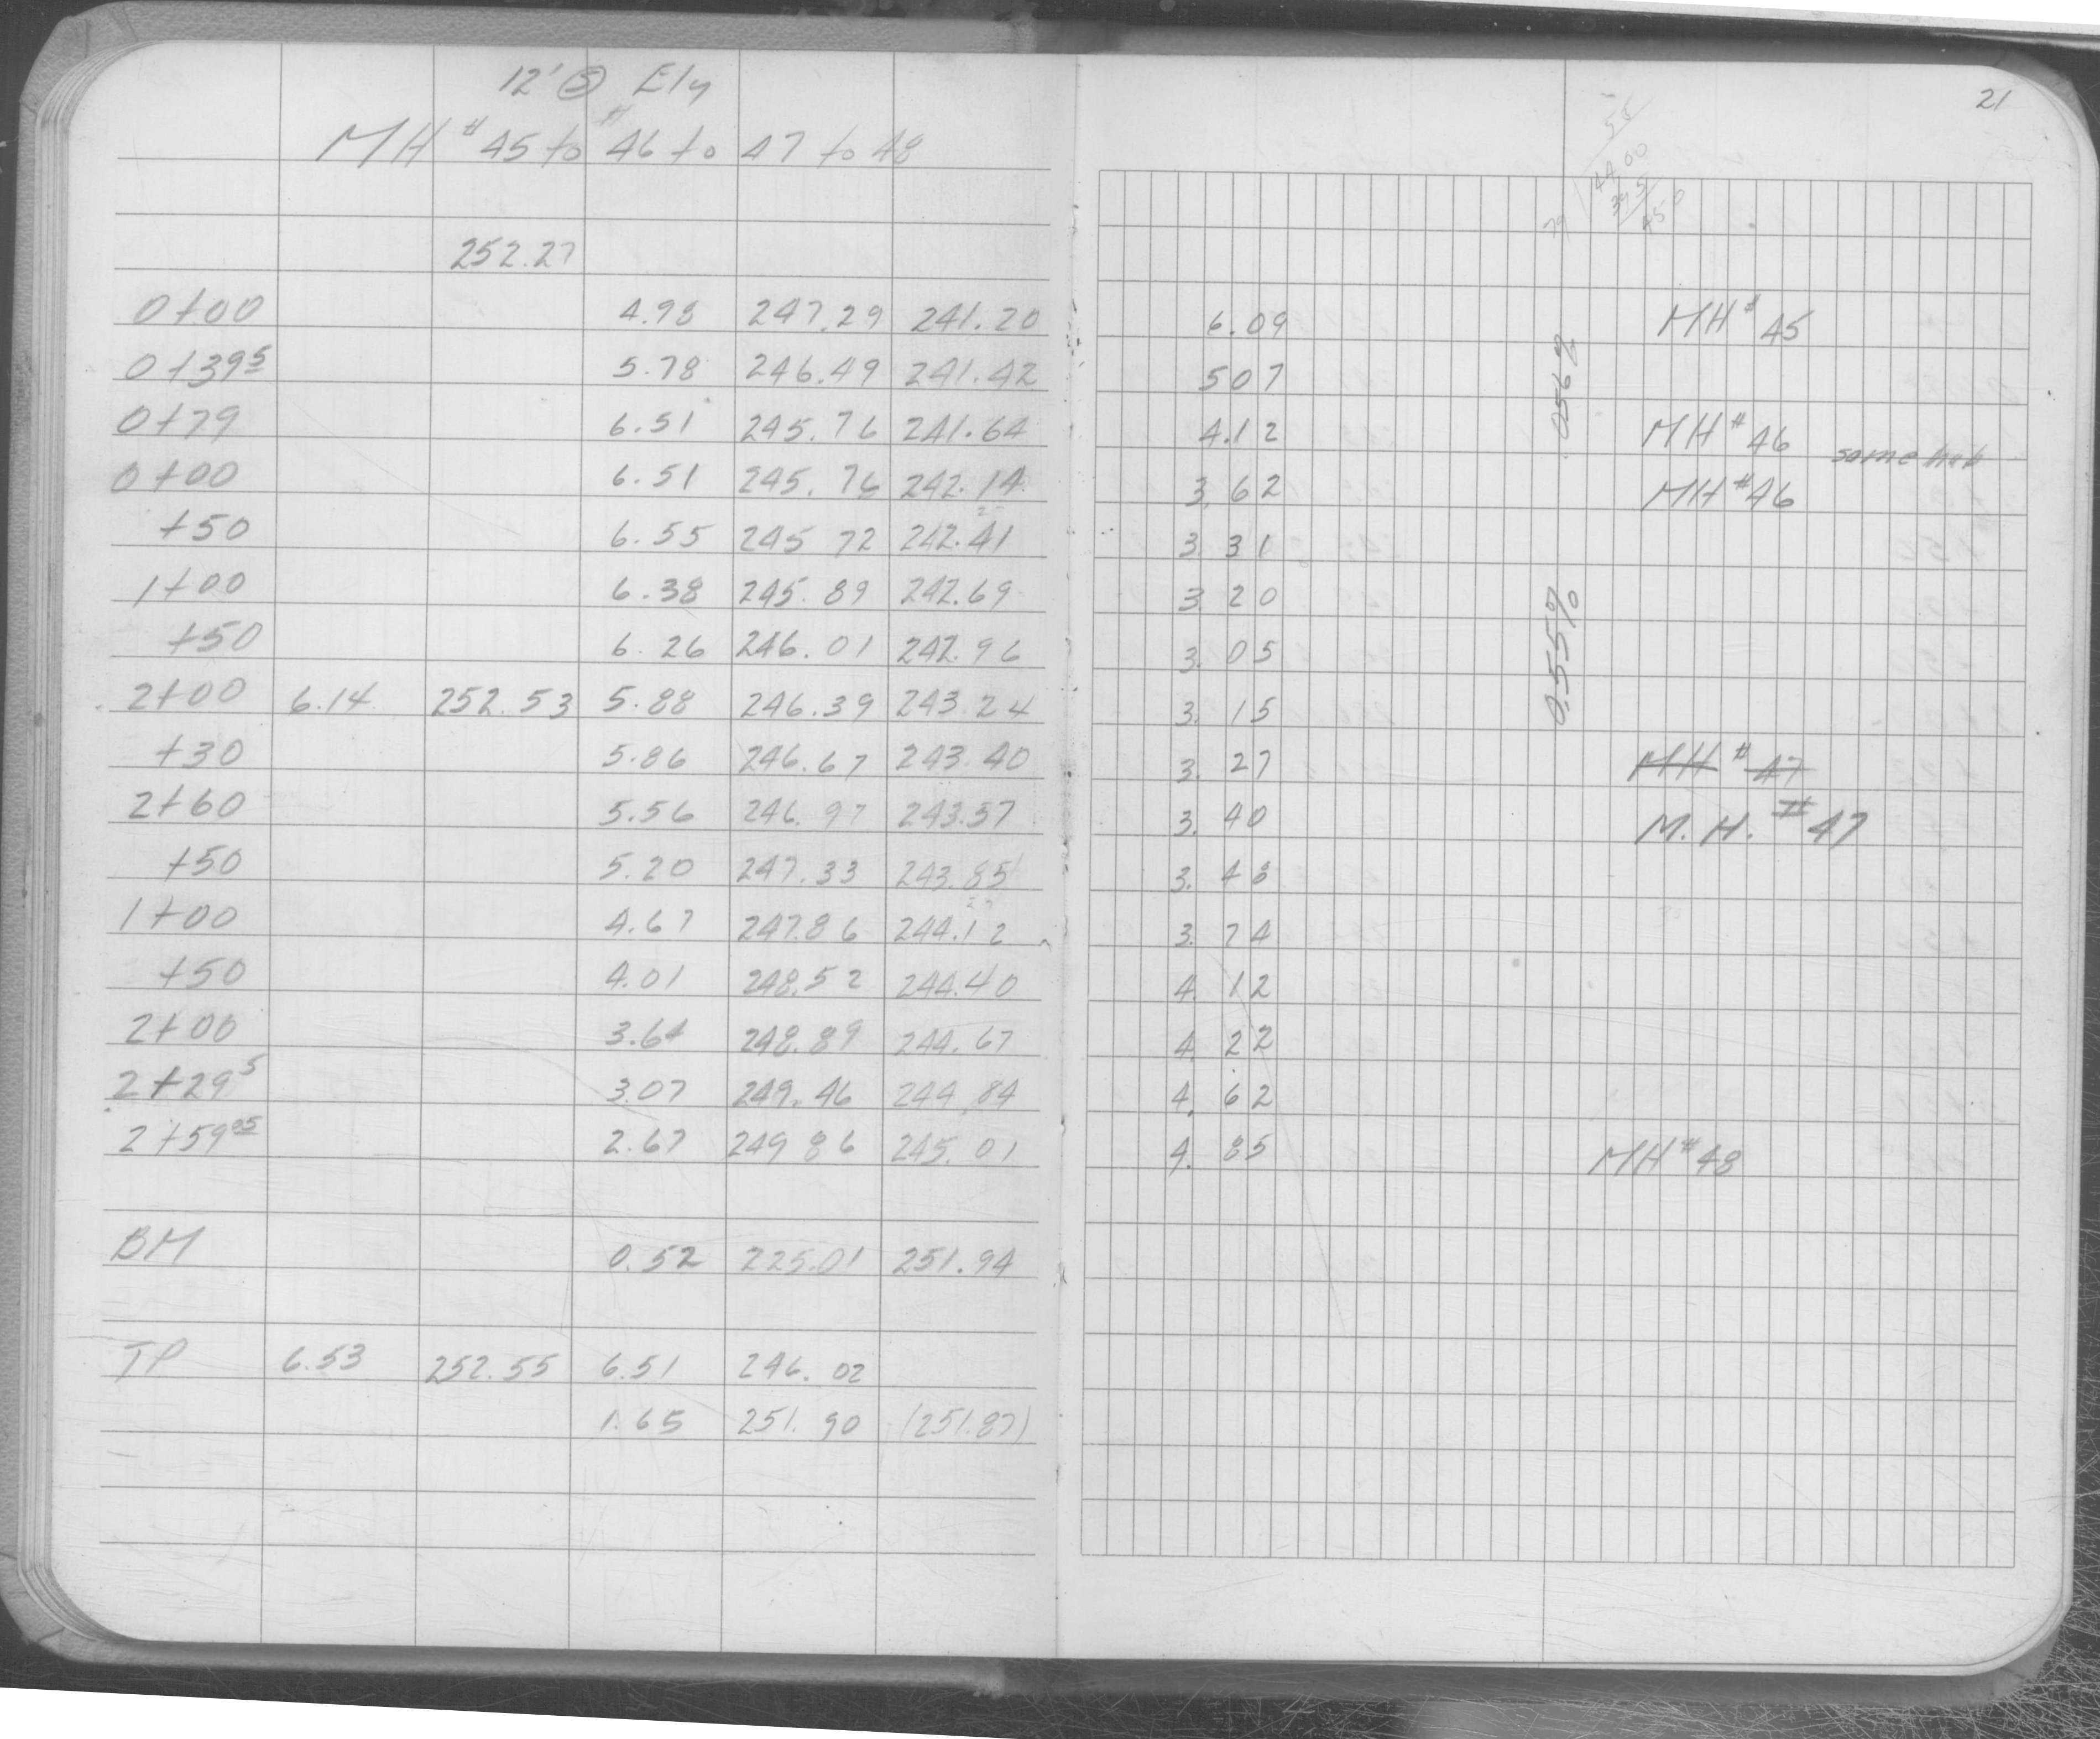 12' Ⓢ Ely
MH # 45 to # 46 to 47 to 48
21
252.27
0+00 4.98 247.29 241.20 6.09 MH # 45
0+39⁵ 5.78 246.49 241.42 507
0+79 6.51 245.76 241.64 4.12 MH # 46 same hub
0+00 6.51 245.76 242.14 3.62 MH # 46
+50 6.55 245 72 242.41 3.31
1+00 6.38 245.89 242.69 3.20
+50 6.26 246.01 242.96 3.05
2+00 6.14 252.53 5.88 246.39 243.24 3.15
+30 5.86 246.67 243.40 3.27 MH # 47
2+60 5.56 246.97 243.57 3.40 M.H. # 47
+50 5.20 247.33 243.85 3.48
1+00 4.67 247.86 244.12 3.74
+50 4.01 248.52 244.40 4.12
2+00 3.64 248.89 244.67 4.22
2+29⁵ 3.07 249.46 244.84 4.62
2+59⁰⁵ 2.67 249 86 245.01 4.85 MH # 48
BM 0.52 225.01 251.94
TP 6.53 252.55 6.51 246.02
1.65 251.90 (251.87)
0.555%